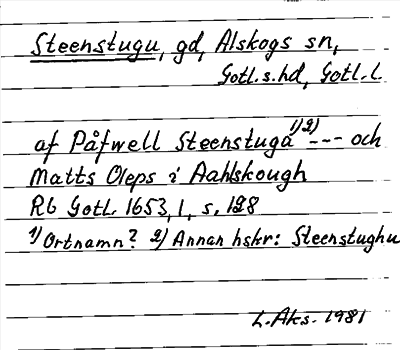 Steenstugu, gd, Alskogs sn,
Gotl. s. hd, Gotl. l.
af Påfwell Steenstuga 1) 2) --- och
Matts Oleps i Aahlskough
Rb Gotl. 1653, 1, s. 128
1) Ortnamn? 2) Annan hskr: Steenstughu
L. Aks. 1981